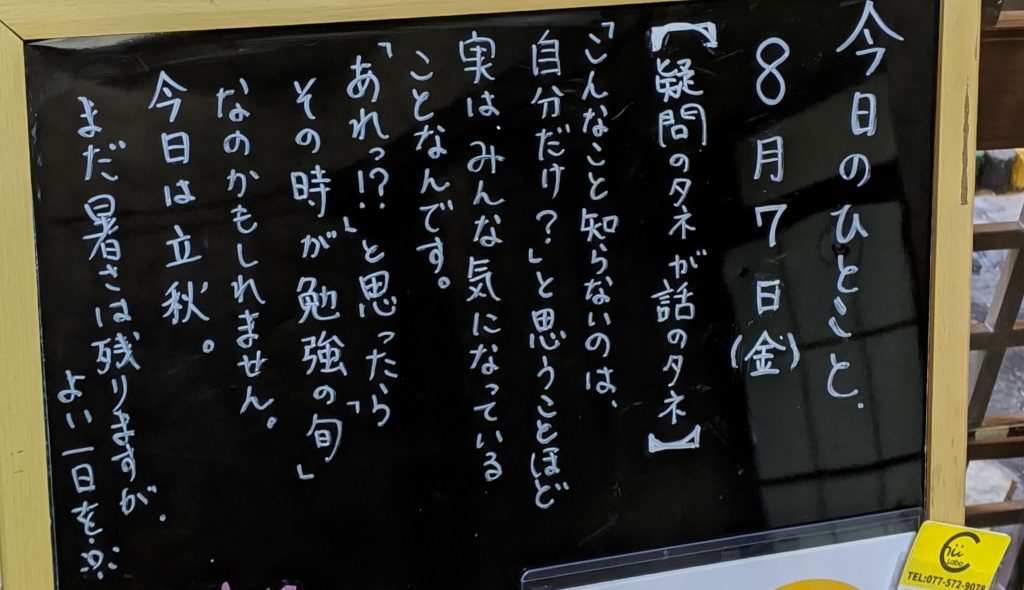 今日のひとこと.
8月7日(金)
【疑問のタネが話のタネ】
「こんなこと知らないのは、
自分だけ？」と思うことほど
実は、みんな気になっている
ことなんです。
「あれっ!?」と思ったら
その時が「勉強の旬」
なのかもしれません。
今日は立秋。
まだ暑さは残りますが.
よい一日を
Chii
Labo
TEL:077-572-9078